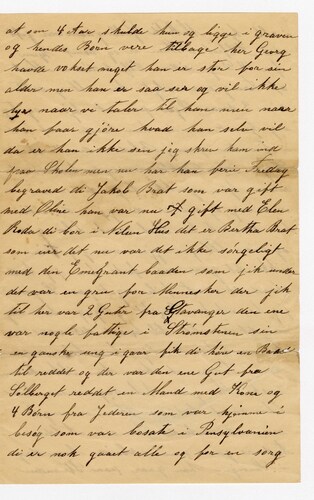 at om 4 Aar skulde hun og ligge i graven
og hendes Børn vere tilbage her Georg
havde vokset meget han er stor for sin
alder men han er saa ser og vil ikke
naar vi taler til ham men naar
han faar gjöre hvad han selv vil
da er han ikke sen jeg skrev ham ind
paa Skolen men nu har han ferie Fredag
begraved di Jakob Brat som var gift
med Oline han var nu gift med Elen
Roda di bor i Hus det er Bertha Brat
som uer det nu var det ikke sørgeligt
med den Emegrant baaden som jik under
det var en gru for Mennesker der jik
til her var 2 Guter fra Stavanger den ene
var nogle fattige i Strömstenen sin
en ganske ung i gaar fik di höre en Baad
til reddet og der var den ene Gut fra
Sölberget reddet en Mand med Kone og
4 Börn fra Jederen som var hjemme i
besög som var bosate i Pensylvanien
di er nok gaaet alle og for en sorg